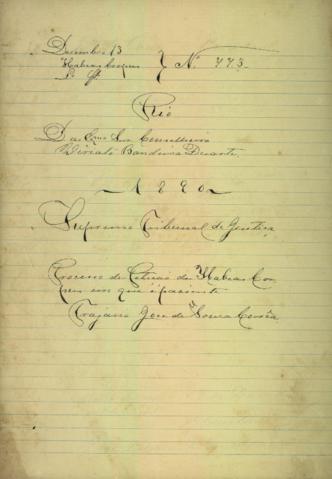 Dezembro 13
Habeas Corpus } Nº 773.
Rio
Do Exmo Snr Conselheiro
Viriato Bandeira Duarte
1890
Supremo Tribunal de Justiça
Processo de Petição de Habeas Cor
pus em que é paciente
Trajano José de Souza Corrêa